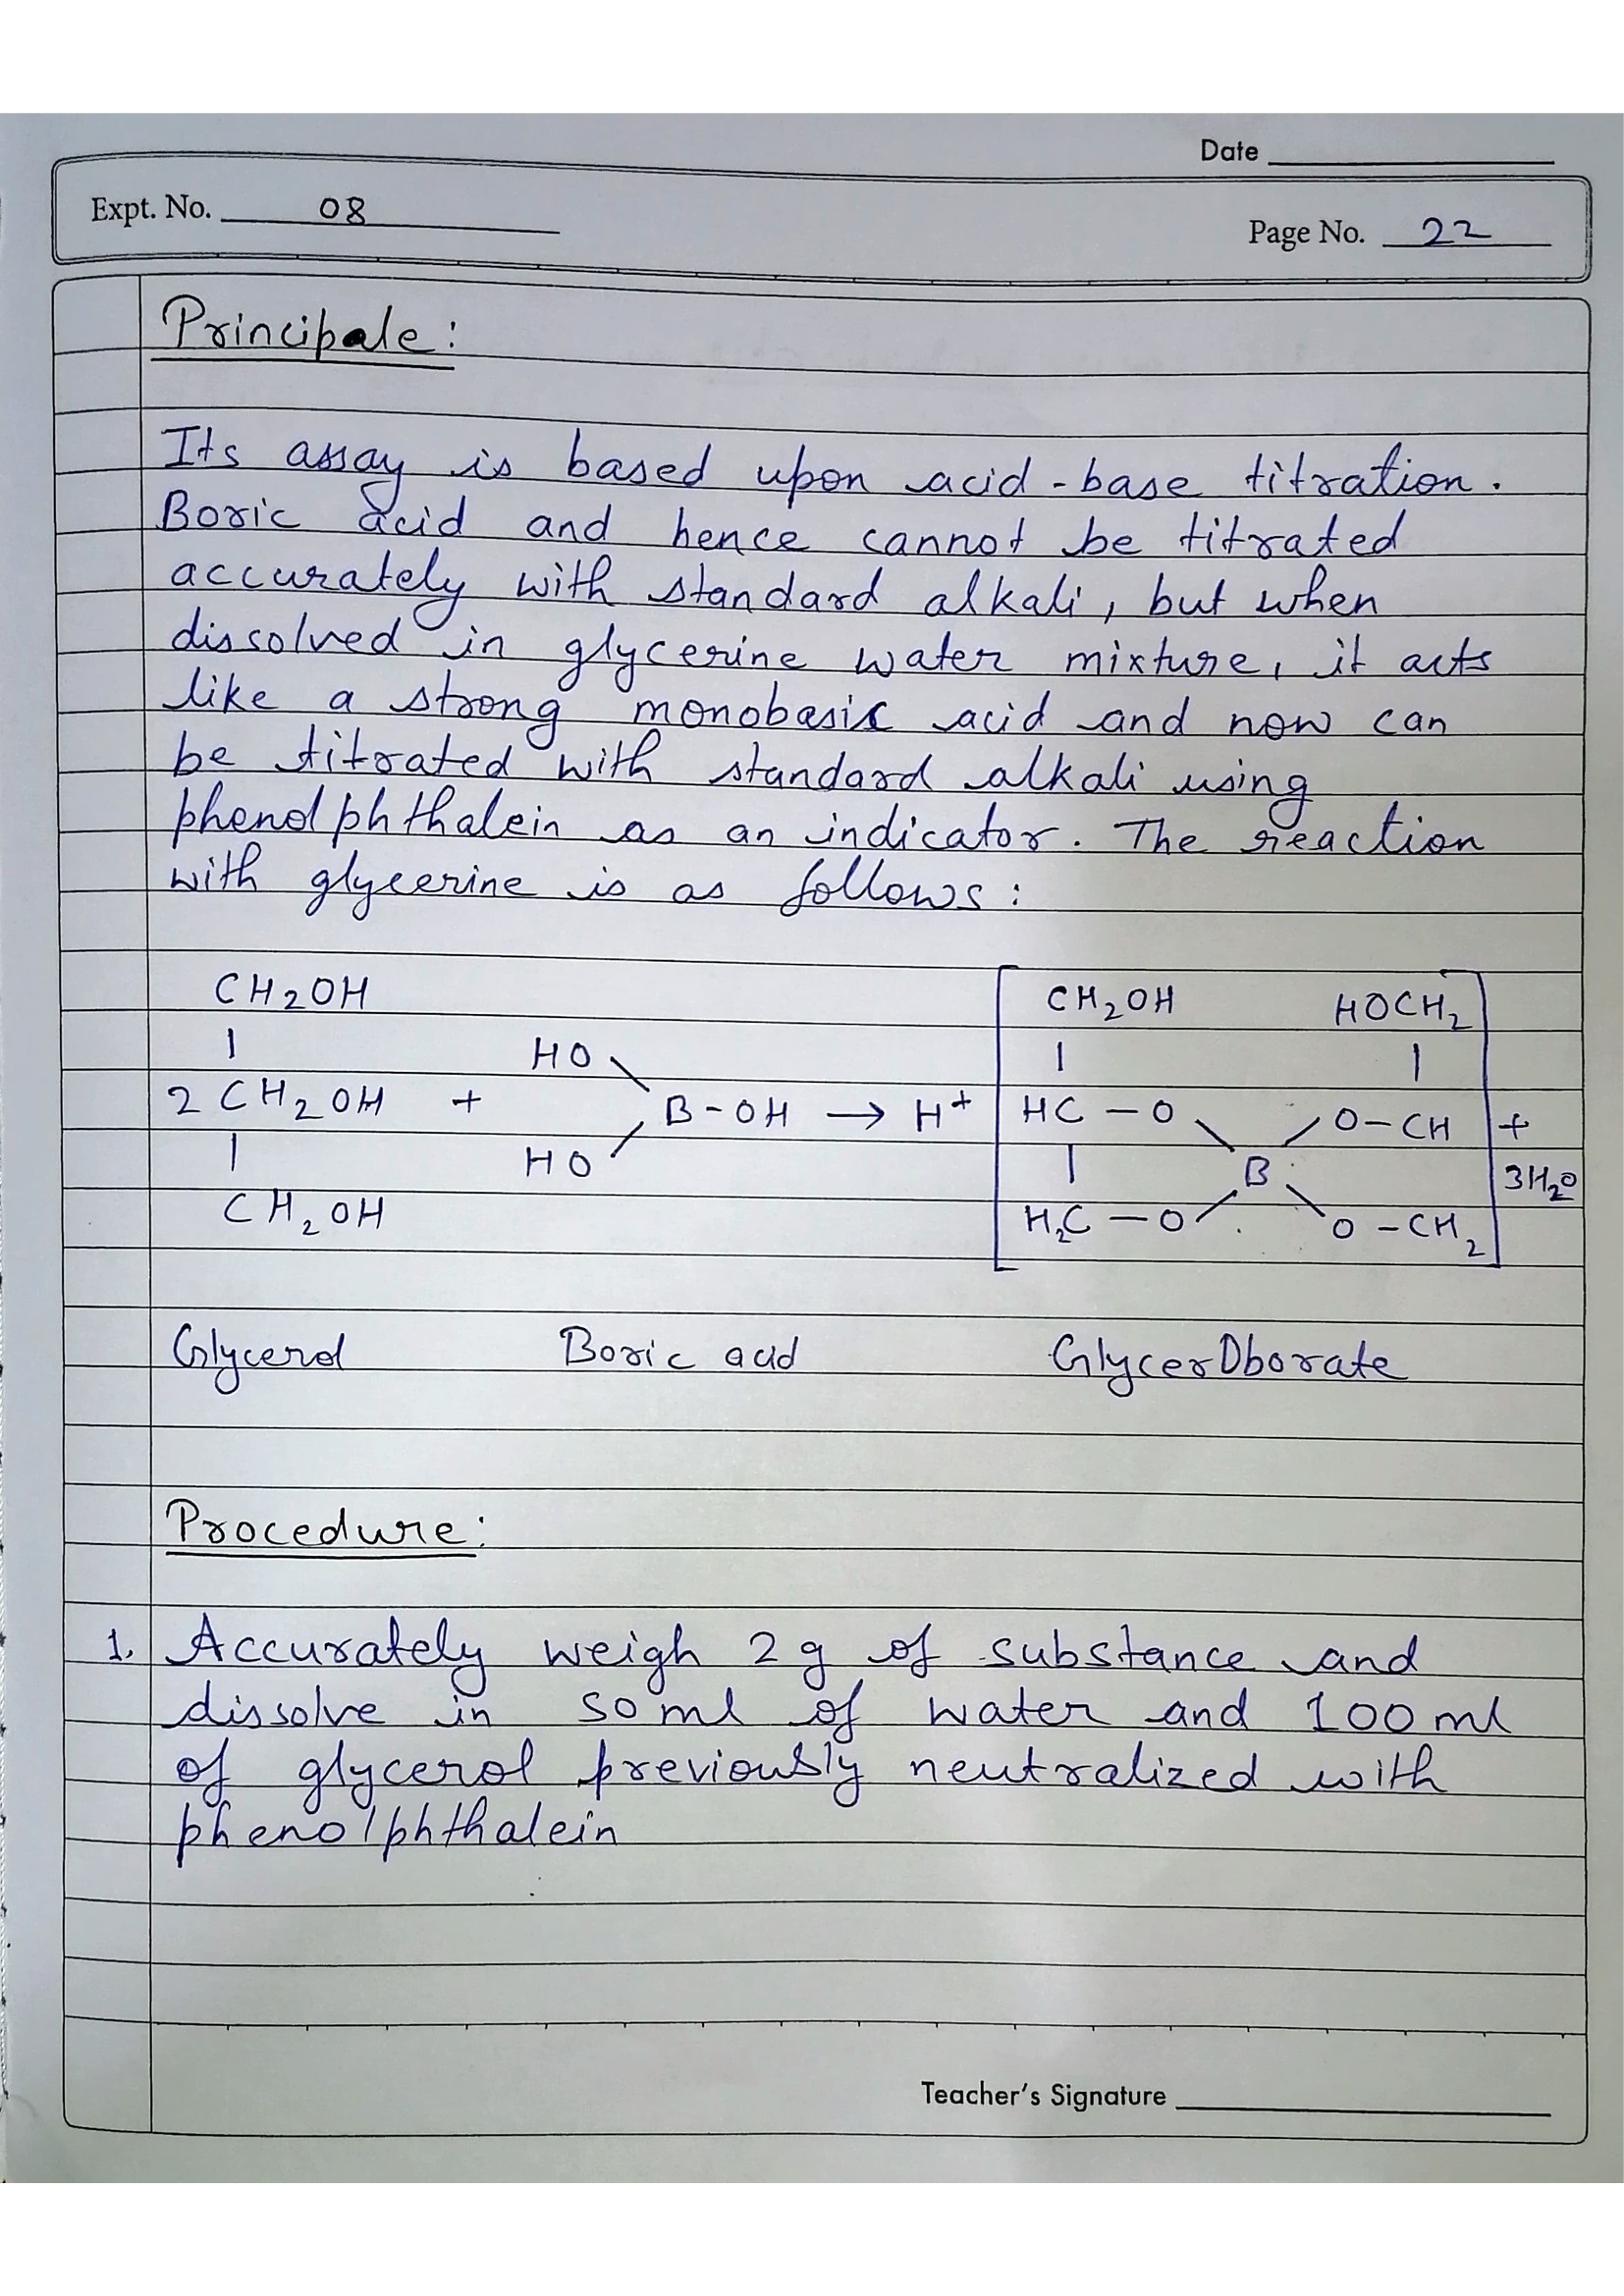 Date
Expt. No. 08
Page No. 22
Principale:
Its assay is based upon acid-base titration.
Boric acid and hence cannot be titrated
accurately with standard alkali, but when
dissolved in glycerine water mixture, it acts
like a strong monobasic acid and now can
be titrated with standard alkali using
phenolphthalein as an indicator. The reaction
with glycerine is as follows:
CH2OH CH2OH HOCH2
HO
2 CH2OH + B-OH → H+ HC-O O-CH +
HO B 3H2O
CH2OH H2C-O O-CH2
Glycerol Boric acid GlycerOborate
Procedure:
1. Accurately weigh 2 g of substance and
dissolve in 50 ml of water and 100 ml
of glycerol previously neutralized with
phenolphthalein
Teacher's Signature